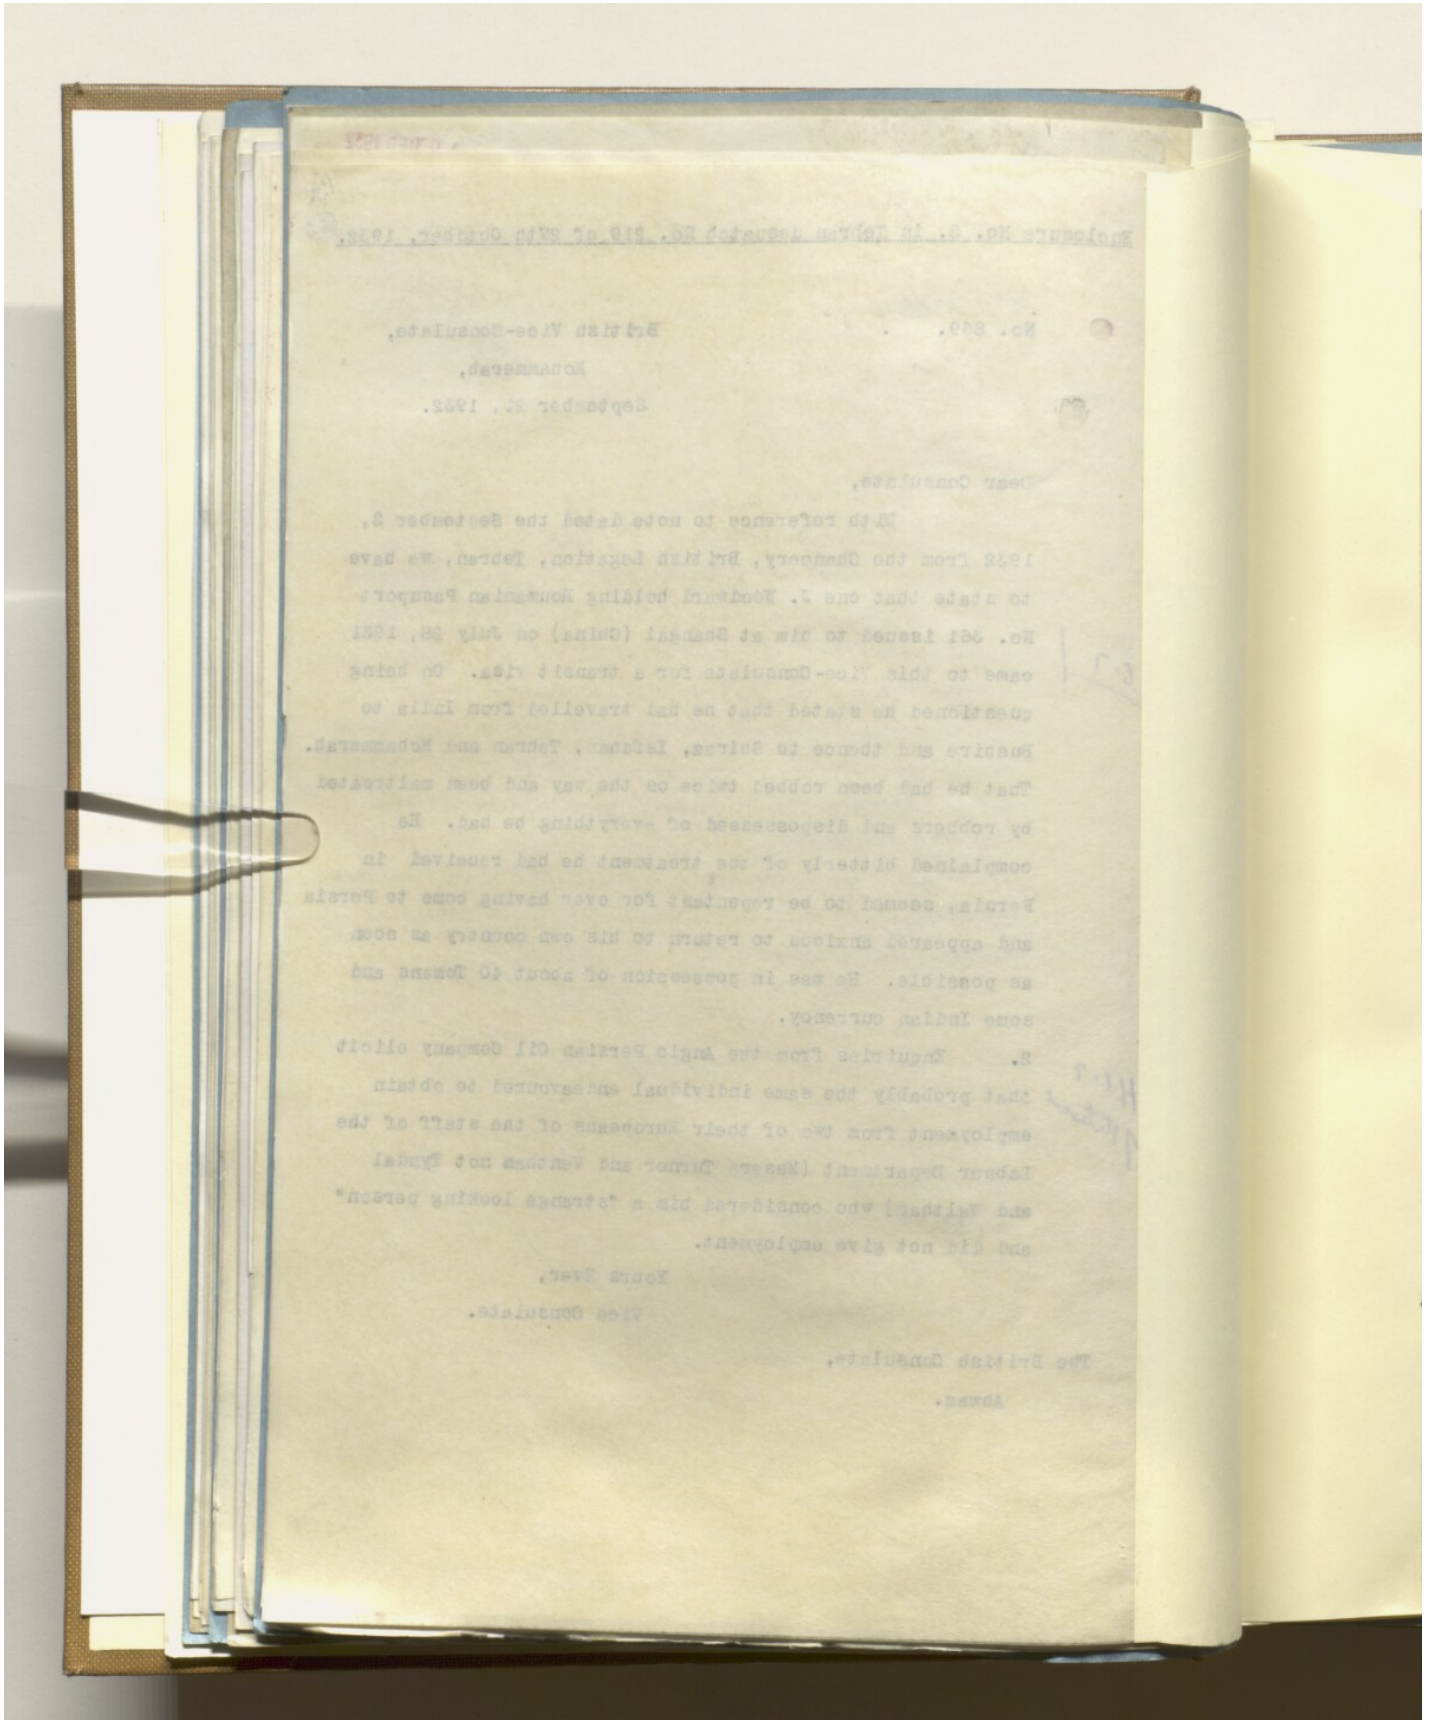 Enclosure No. 2. in Tehran despatch No. 219 of 27th October, 1932.
No. 849.
British Vice-Consulate,
Mohammerah,
September 21, 1932.
Dear Consulate,
With reference to note dated the September 2,
1932 from the Chancery, British Legation, Tehran, we have
to state that one J. Woodward holding Roumanian Passport
No. 361 issued to him at Shangai (China) on July 28, 1921
came to this Vice-Consulate for a transit visa. On being
questioned he stated that he had travelled from India to
Bushire and thence to Shiraz, Isfahan, Tehran and Mohammerah.
That he had been robbed twice on the way and been maltreated
by robbers and dispossessed of everything he had. He
complained bitterly of the treatment he had received in
Persia, seemed to be repentant for ever having come to Persia
and appeared anxious to return to his own country as soon
as possible. He was in possession of about 40 Tomans and
some Indian currency.
2. Enquiries from the Anglo Persian Oil Company elicit
that probably the same individual endeavoured to obtain
employment from two of their Europeans of the staff of the
Labour Department (Messrs Turner and Ventham not Tyndal
and Walthar) who considered him a "strange looking person"
and did not give employment.
Yours Ever,
Vice Consulate.
The British Consulate,
Ahwaz.